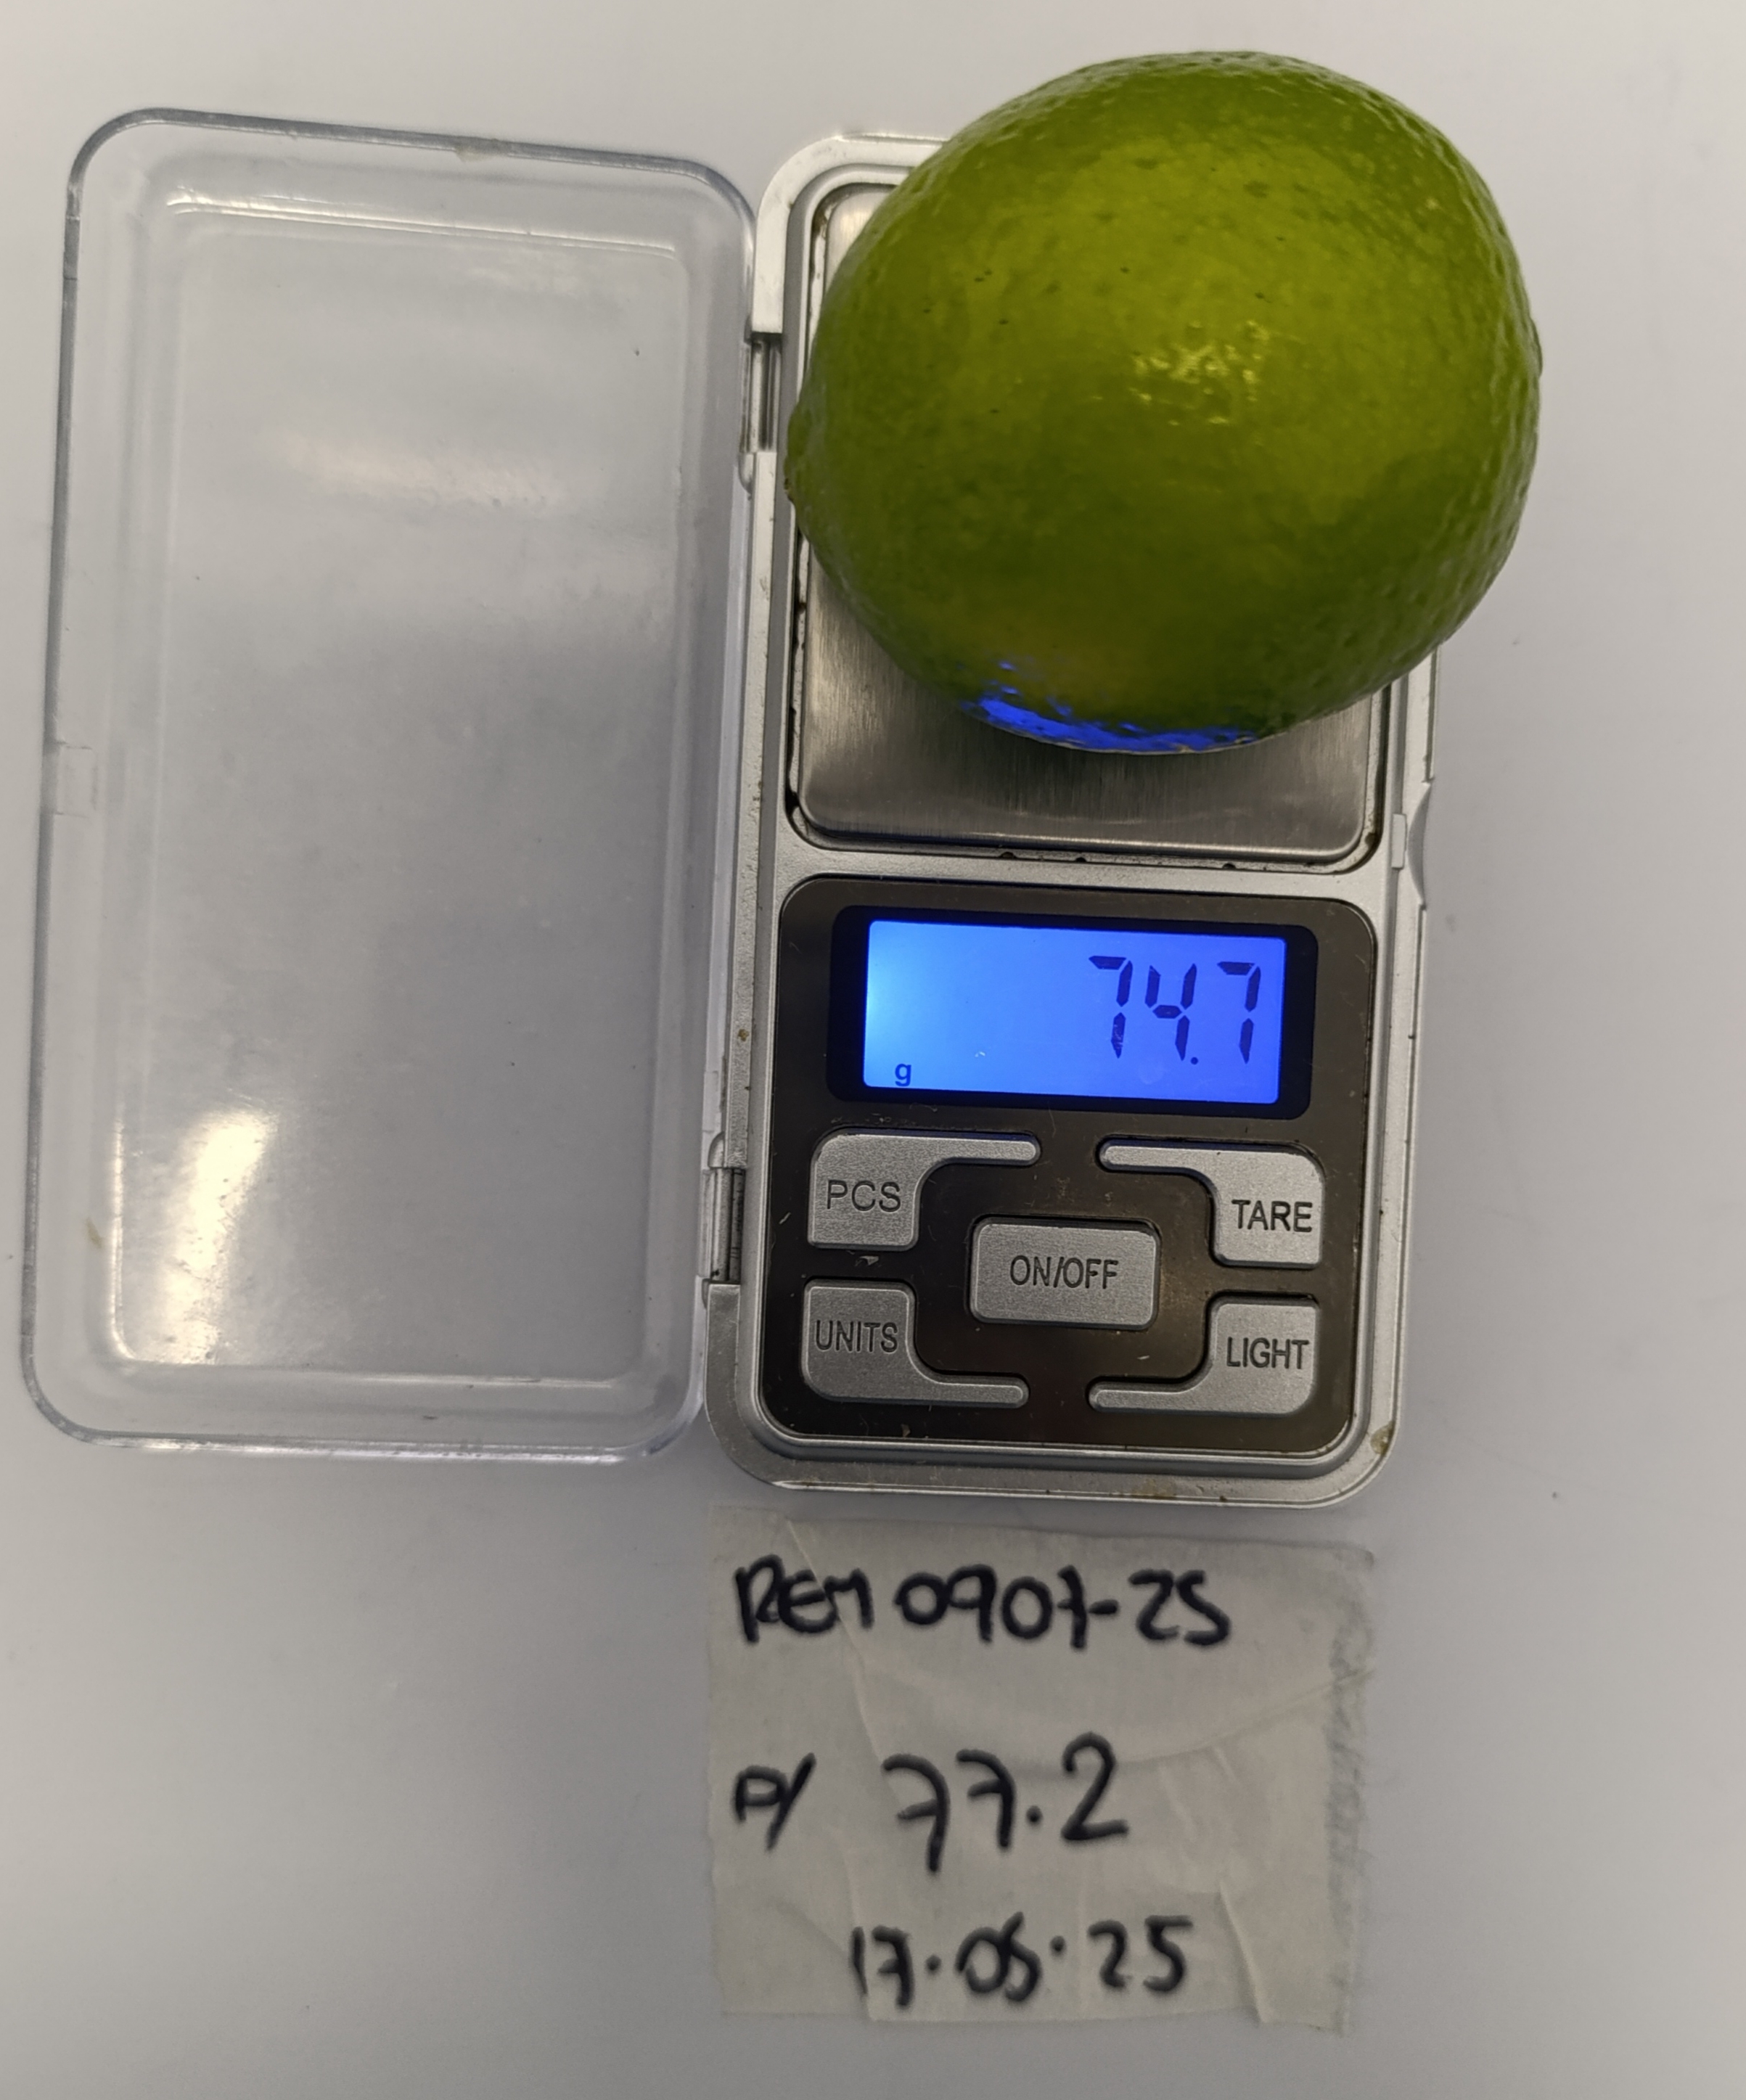 74.7
g
PCS
TARE
ON/OFF
UNITS
LIGHT
REM 0907-25
P/ 77.2
17.05.25